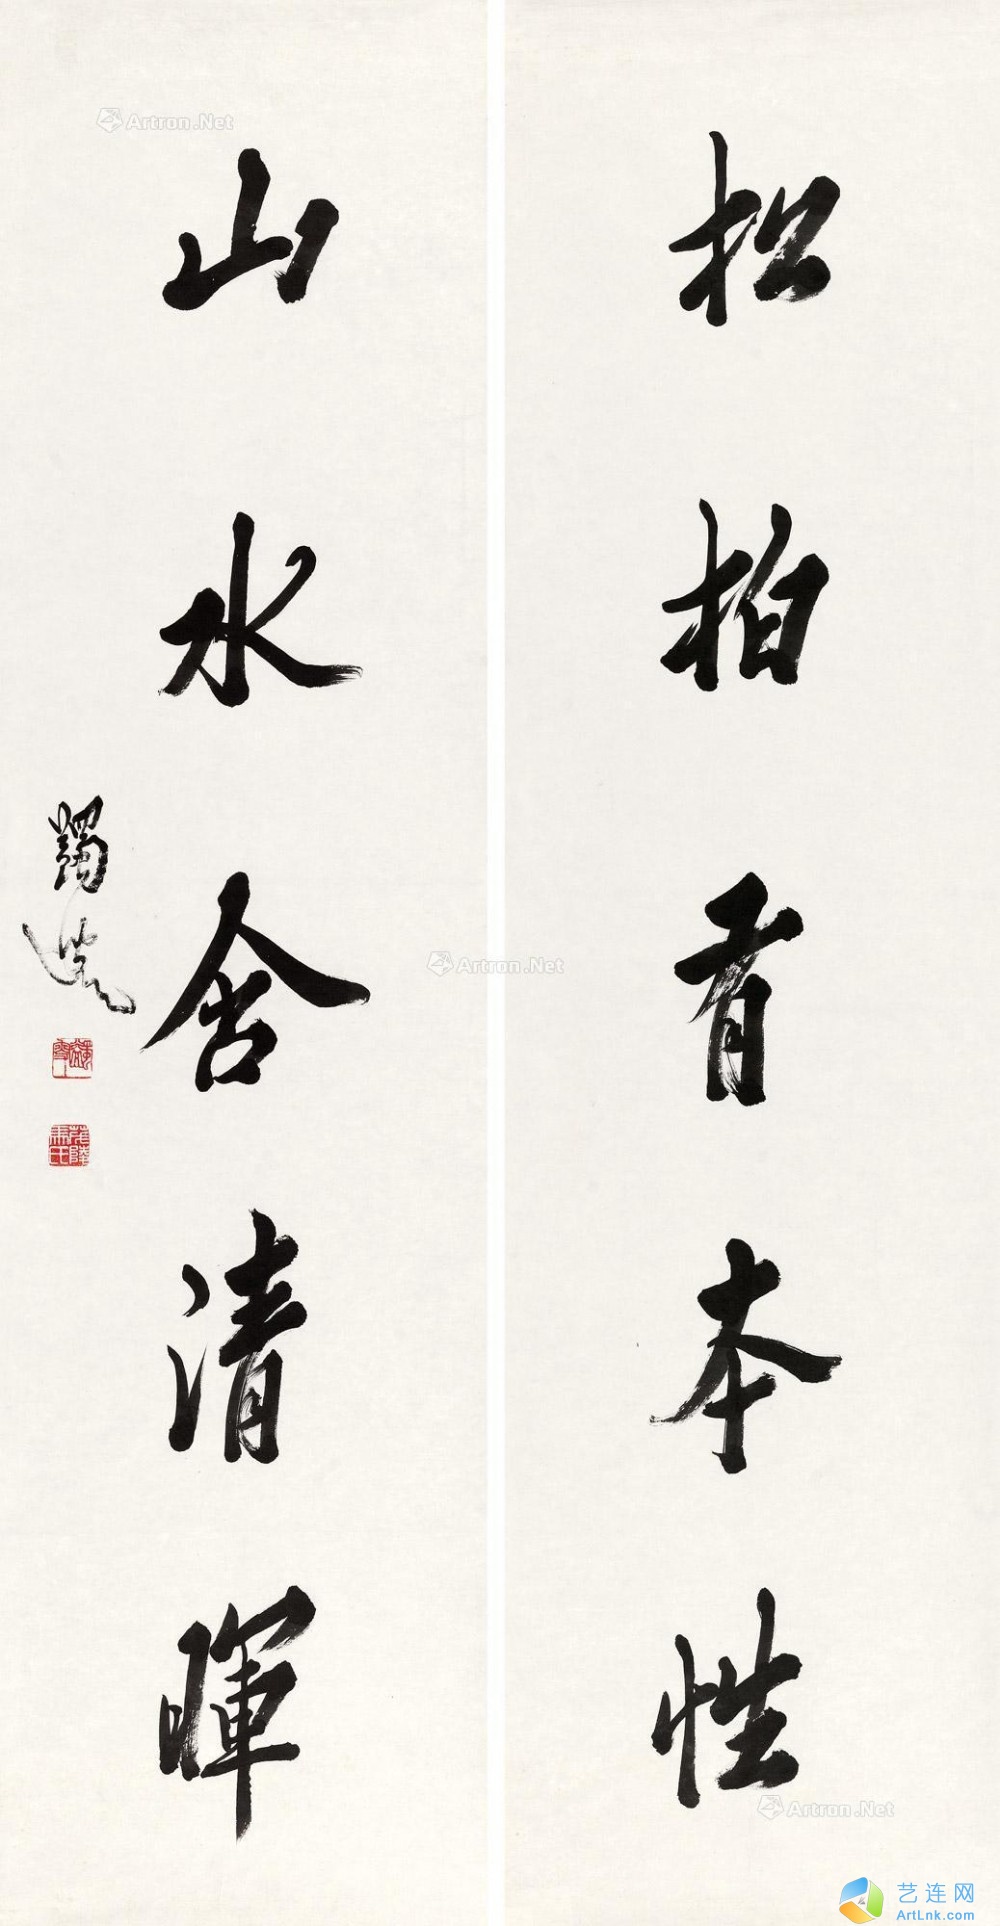 松柏有本性
山水含清暉
蠲叟
Artron.Net
Artron.Net
Artron.Net
艺连网
ArtLnk.com